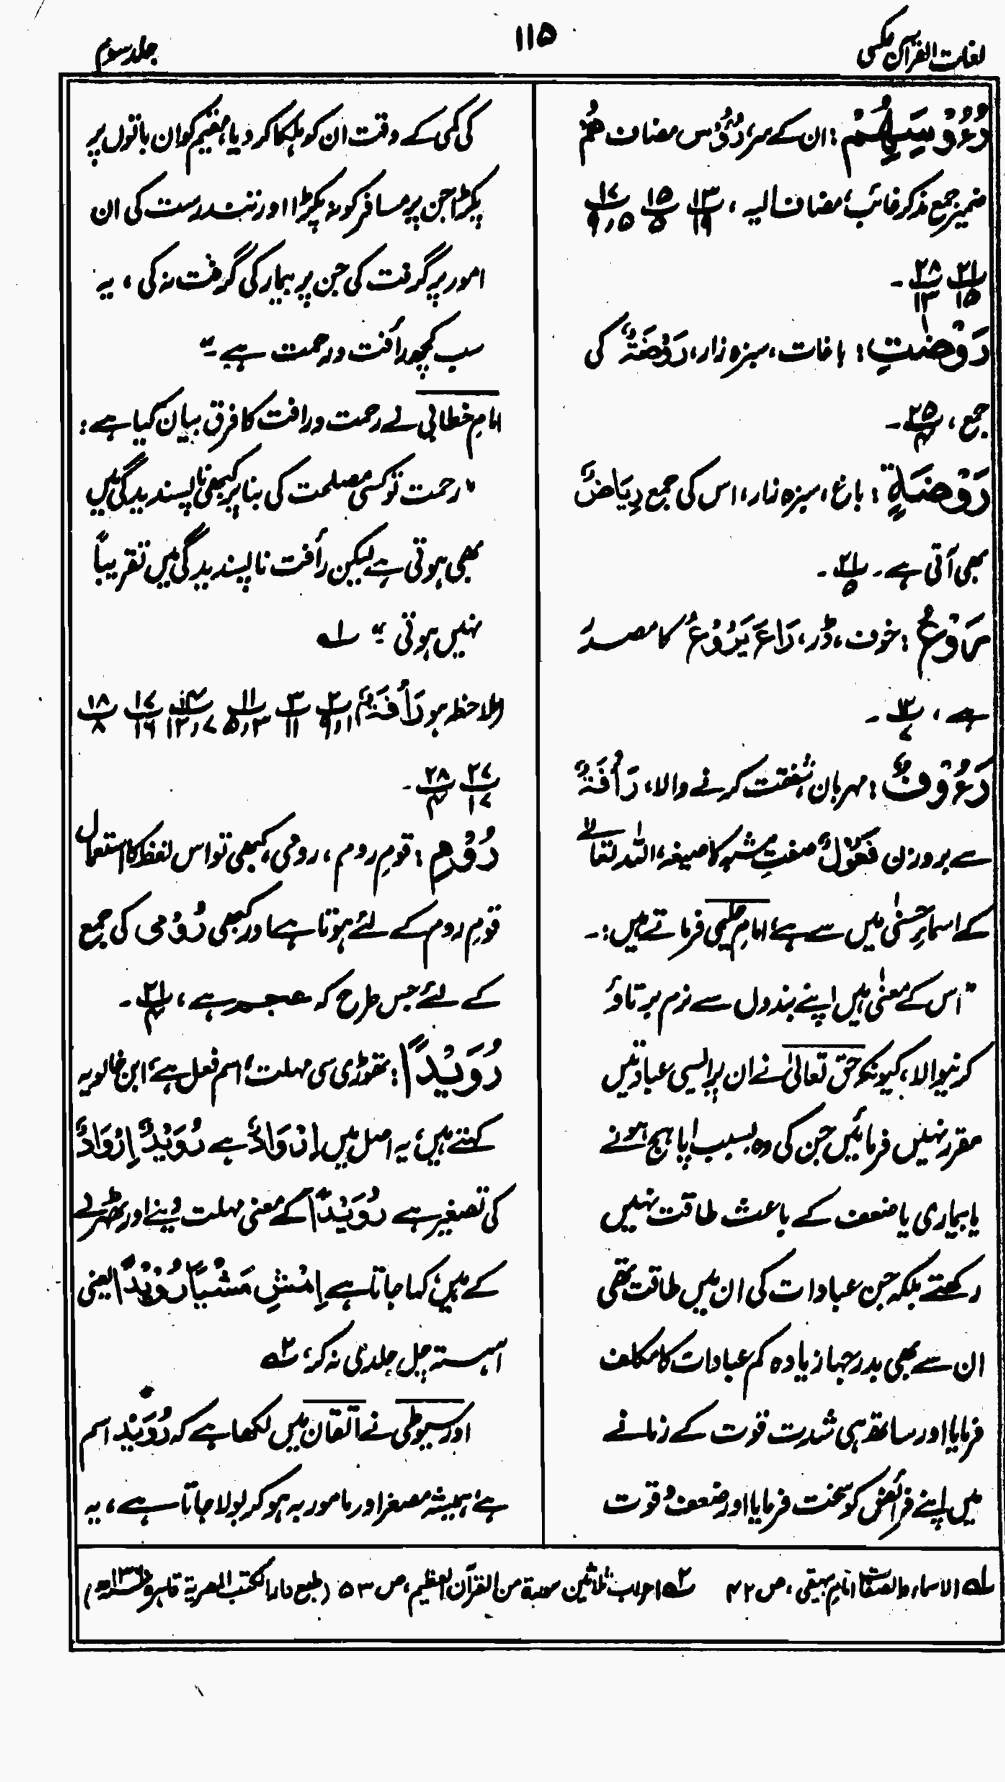 لغات القرآن مکمل
۱۱۵
جلد سوم
رُءُوْسِهِمْ: ان کے سر، رُؤُس مضاف هُمْ
ضمیر جمع مذکر غائب، مضاف الیہ، ۱۳/۱۹ ۱۵/۵ ۱۷/۵،۹
۲۱/۱۵ ۲۸/۱۳۔
رَوْضٰتِ: باغات، سبزہ زار، رَوْضَةٌ کی
جمع، ۲۵/۴۔
رَوْضَةٍ: باغ، سبزہ زار، اس کی جمع رِیَاضٌ
بھی آتی ہے۔ ۲۱/۵۔
رَوْعُ: خوف، ڈر، رَاعَ یَرُوْعُ کا مصدر
ہے، ۱۲/۷۔
رَءُوْفٌ: مہربان، شفقت کرنے والا، رَأْفَةٌ
سے بروزن فَعُوْلٌ صفتِ مشبہ کا صیغہ، اللہ تعالےٰ
کے اسماءِ حسنیٰ میں سے ہے، امام حلیمی فرماتے ہیں:۔
"اس کے معنیٰ ہیں اپنے بندوں سے نرم برتاؤ
کرنیوالا، کیونکہ حق تعالیٰ نے ان پر ایسی عبادتیں
مقرر نہیں فرمائیں جن کی وہ بسبب اپاہج ہونے
یا بیماری یا ضعف کے باعث طاقت نہیں
رکھتے بلکہ جن عبادات کی ان میں طاقت تھی
ان سے بھی بدرجہا زیادہ کم عبادات کا مکلف
فرمایا اور ساتھ ہی شدت قوت کے زمانے
میں اپنے فرائض کو سخت فرمایا اور ضعف قوت
کی کمی کے وقت ان کو ہلکا کر دیا، مقیم کو ان باتوں پر
پکڑا جن پر مسافر کو نہ پکڑا اور تندرست کی ان
امور پر گرفت کی جن پر بیمار کی گرفت نہ کی، یہ
سب کچھ رأفت و رحمت ہے۔"
امام خطابی نے رحمت و رافت کا فرق بیان کیا ہے:
"رحمت تو کسی مصلحت کی بنا پر کبھی ناپسندیدگی میں
بھی ہوتی ہے لیکن رأفت ناپسندیدگی میں تقریباً
نہیں ہوتی۔" ۱؎
(ملاحظہ ہو رَأْفَةٌ) ۲/۱،۹ ۳/۱۱ ۱۱/۳،۵ ۱۴/۷،۱۲ ۱۷/۱۶ ۱۸/۸
۲۷/۱۷ ۲۸/۴۔
رُوْمِ: قومِ روم، رومی، کبھی تو اس لفظ کا استعمال
قومِ روم کے لئے ہوتا ہے اور کبھی رُوْمی کی جمع
کے لئے جس طرح کہ عجم ہے، ۲۱/۴۔
رُوَیْدًا: تھوڑی سی مہلت، اسم فعل ہے، ابن خالویہ
کہتے ہیں، یہ اصل میں اِرْوَادٌ ہے رُوَیْدٌ اِرْوَادٌ
کی تصغیر ہے رُوَیْدًا کے معنی مہلت دینے اور ٹھہرنے
کے ہیں، کہا جاتا ہے اِمْشِ مَشْیًا رُوَیْدًا یعنی
آہستہ چل جلدی نہ کر، ۲؎
اور سیوطی نے اتقان میں لکھا ہے کہ رُوَیْد اسم
ہے، ہمیشہ مصغر اور مامور بہ ہو کر بولا جاتا ہے، یہ
۱؎ الاسماء والصفات امام بیہقی، ص ۴۲ ۲؎ اعراب ثلاثین سورۃ من القرآن العظیم، ص ۵۳ (طبع دار الکتب المصریۃ قاہرہ)